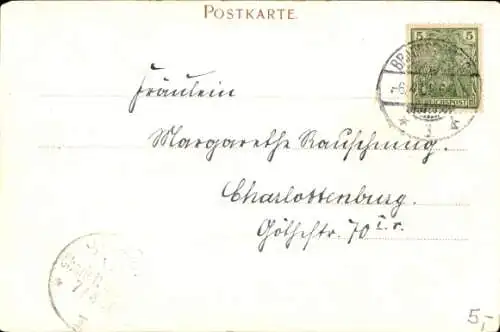 POSTKARTE
5 5
REICHSPOST
Fräulein
Margarethe Rauschning.
Charlottenburg.
Göthestr. 70 I. r.
5,-